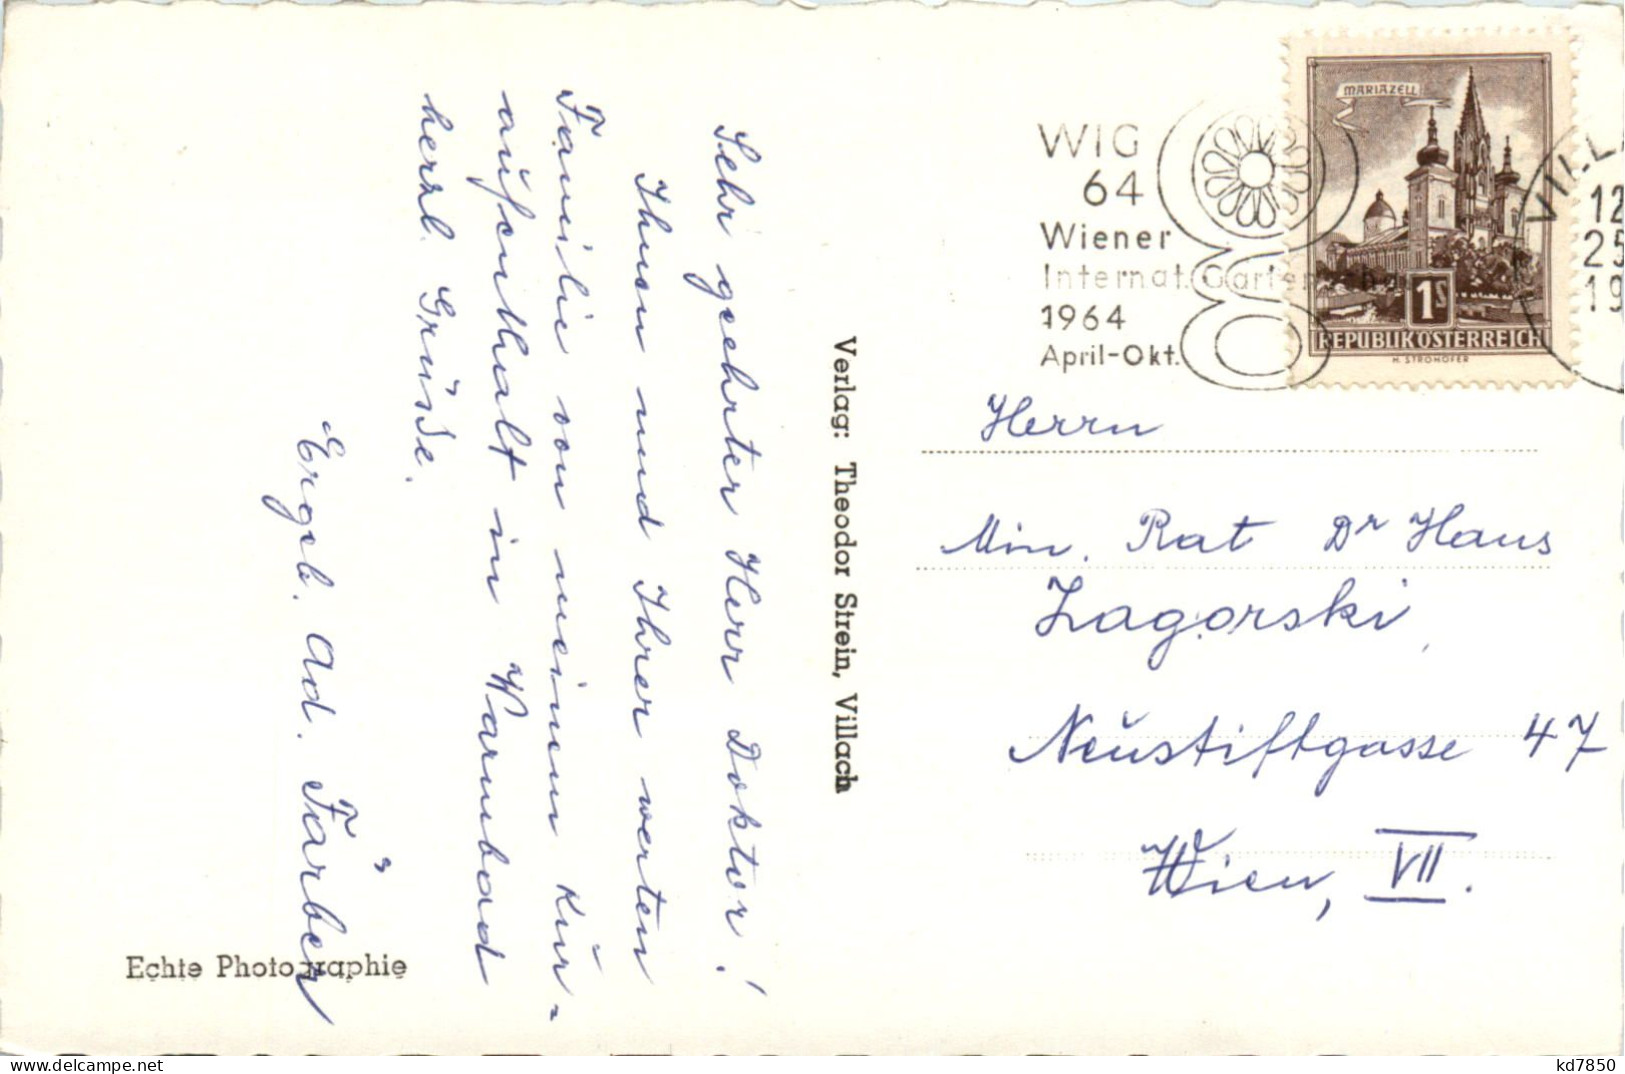 Sehr geehrter Herr Doktor!
Ihnen und Ihrer werten
Familie von meinem Kur-
aufenthalt in Warmbad
herzl. Grüsse.
Ergeb. Ad. Färber
Echte Photographie
Verlag: Theodor Strein, Villach
WIG
64
Wiener
Internat. Gartenscha
1964
April-Okt.
MARIAZELL
1S
REPUBLIK ÖSTERREICH
H. STROHOFER
VILL
12
25
19
Herrn
Min. Rat Dr Hans
Zagorski,
Neustiftgasse 47
Wien, VII.
www.delcampe.net
kd7850